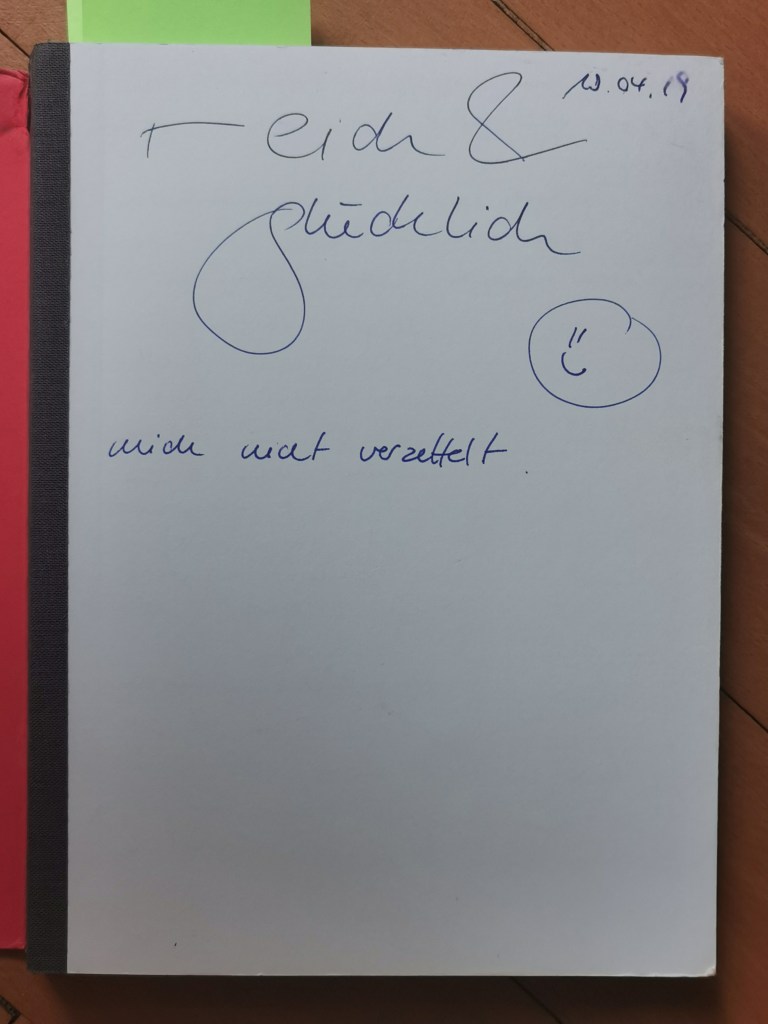 10.04.19
reich &
glücklich
mich nicht verzettelt